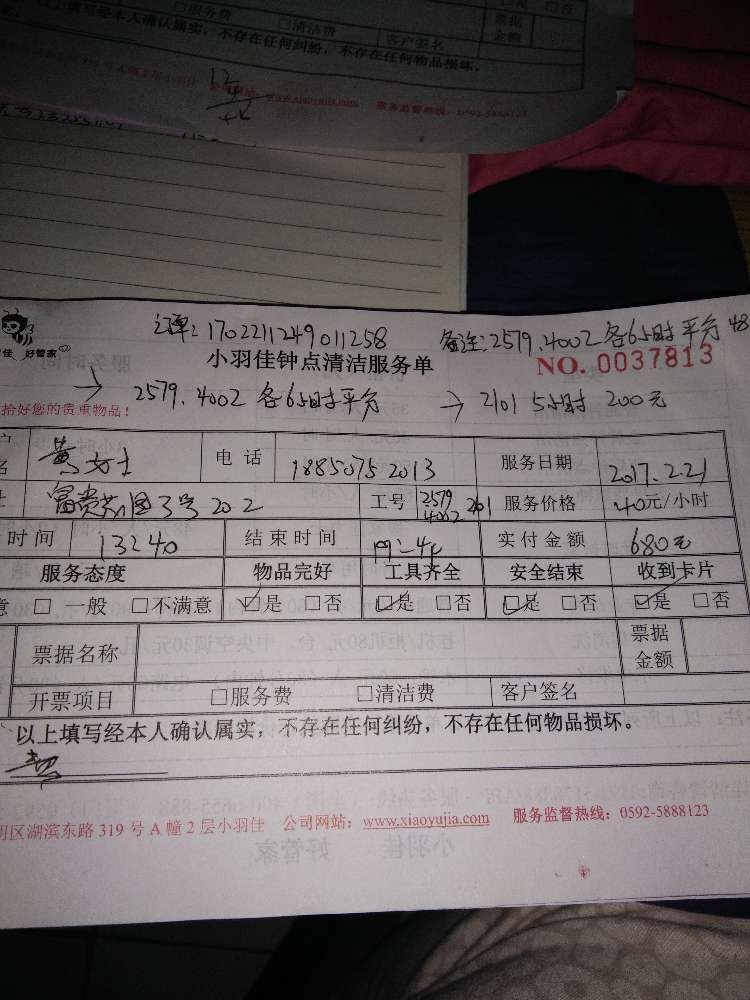 □服务费 □清洁费 客户签名 票据金额 □否
以上填写经本人确认属实,不存在任何纠纷,不存在任何物品损坏。
服务监督热线:0592-5888123
订单:1702211249011258 备注:2579.4002各6小时平分48
好管家 小羽佳钟点清洁服务单 NO. 0037813
→ 2579.4002 各6小时平分 → 2101 5小时 200元
拾好您的贵重物品!
黄女士 电话 18850752013 服务日期 2017.2.21
3号202 工号 2579 4002 服务价格 40元/小时
时间 13:40 结束时间 实付金额 680元
服务态度 物品完好 工具齐全 安全结束 收到卡片
意 □ 一般 □不满意 □是 □否 □是 □否 □是 □否 □是 □否
票据名称 票据金额
开票项目 □服务费 □清洁费 客户签名
以上填写经本人确认属实,不存在任何纠纷,不存在任何物品损坏。
明区湖滨东路 319 号 A 幢 2 层小羽佳 公司网站:www.xiaoyujia.com 服务监督热线:0592-5888123